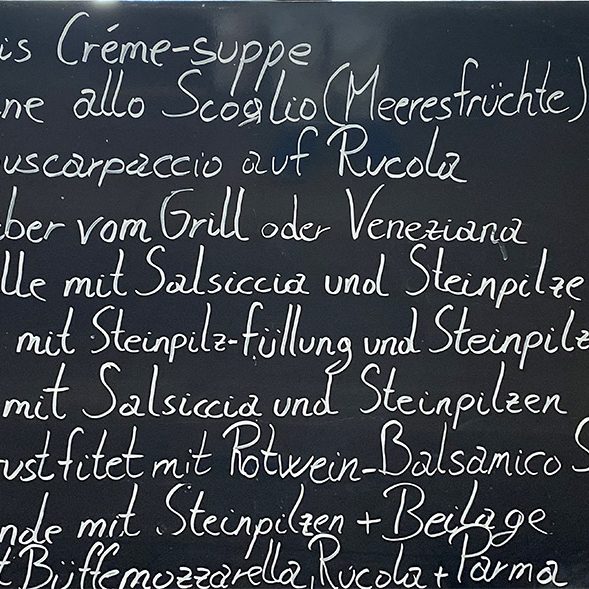 is Créme-suppe
ne allo Scoglio (Meeresfrüchte)
uscarpaccio auf Rucola
ber vom Grill oder Veneziana
lle mit Salsiccia und Steinpilze
mit Steinpilz-füllung und Steinpilz
mit Salsiccia und Steinpilzen
rustfitet mit Rotwein-Balsamico S
nde mit Steinpilzen + Beilage
t Büffemozzarella, Rucola + Parma